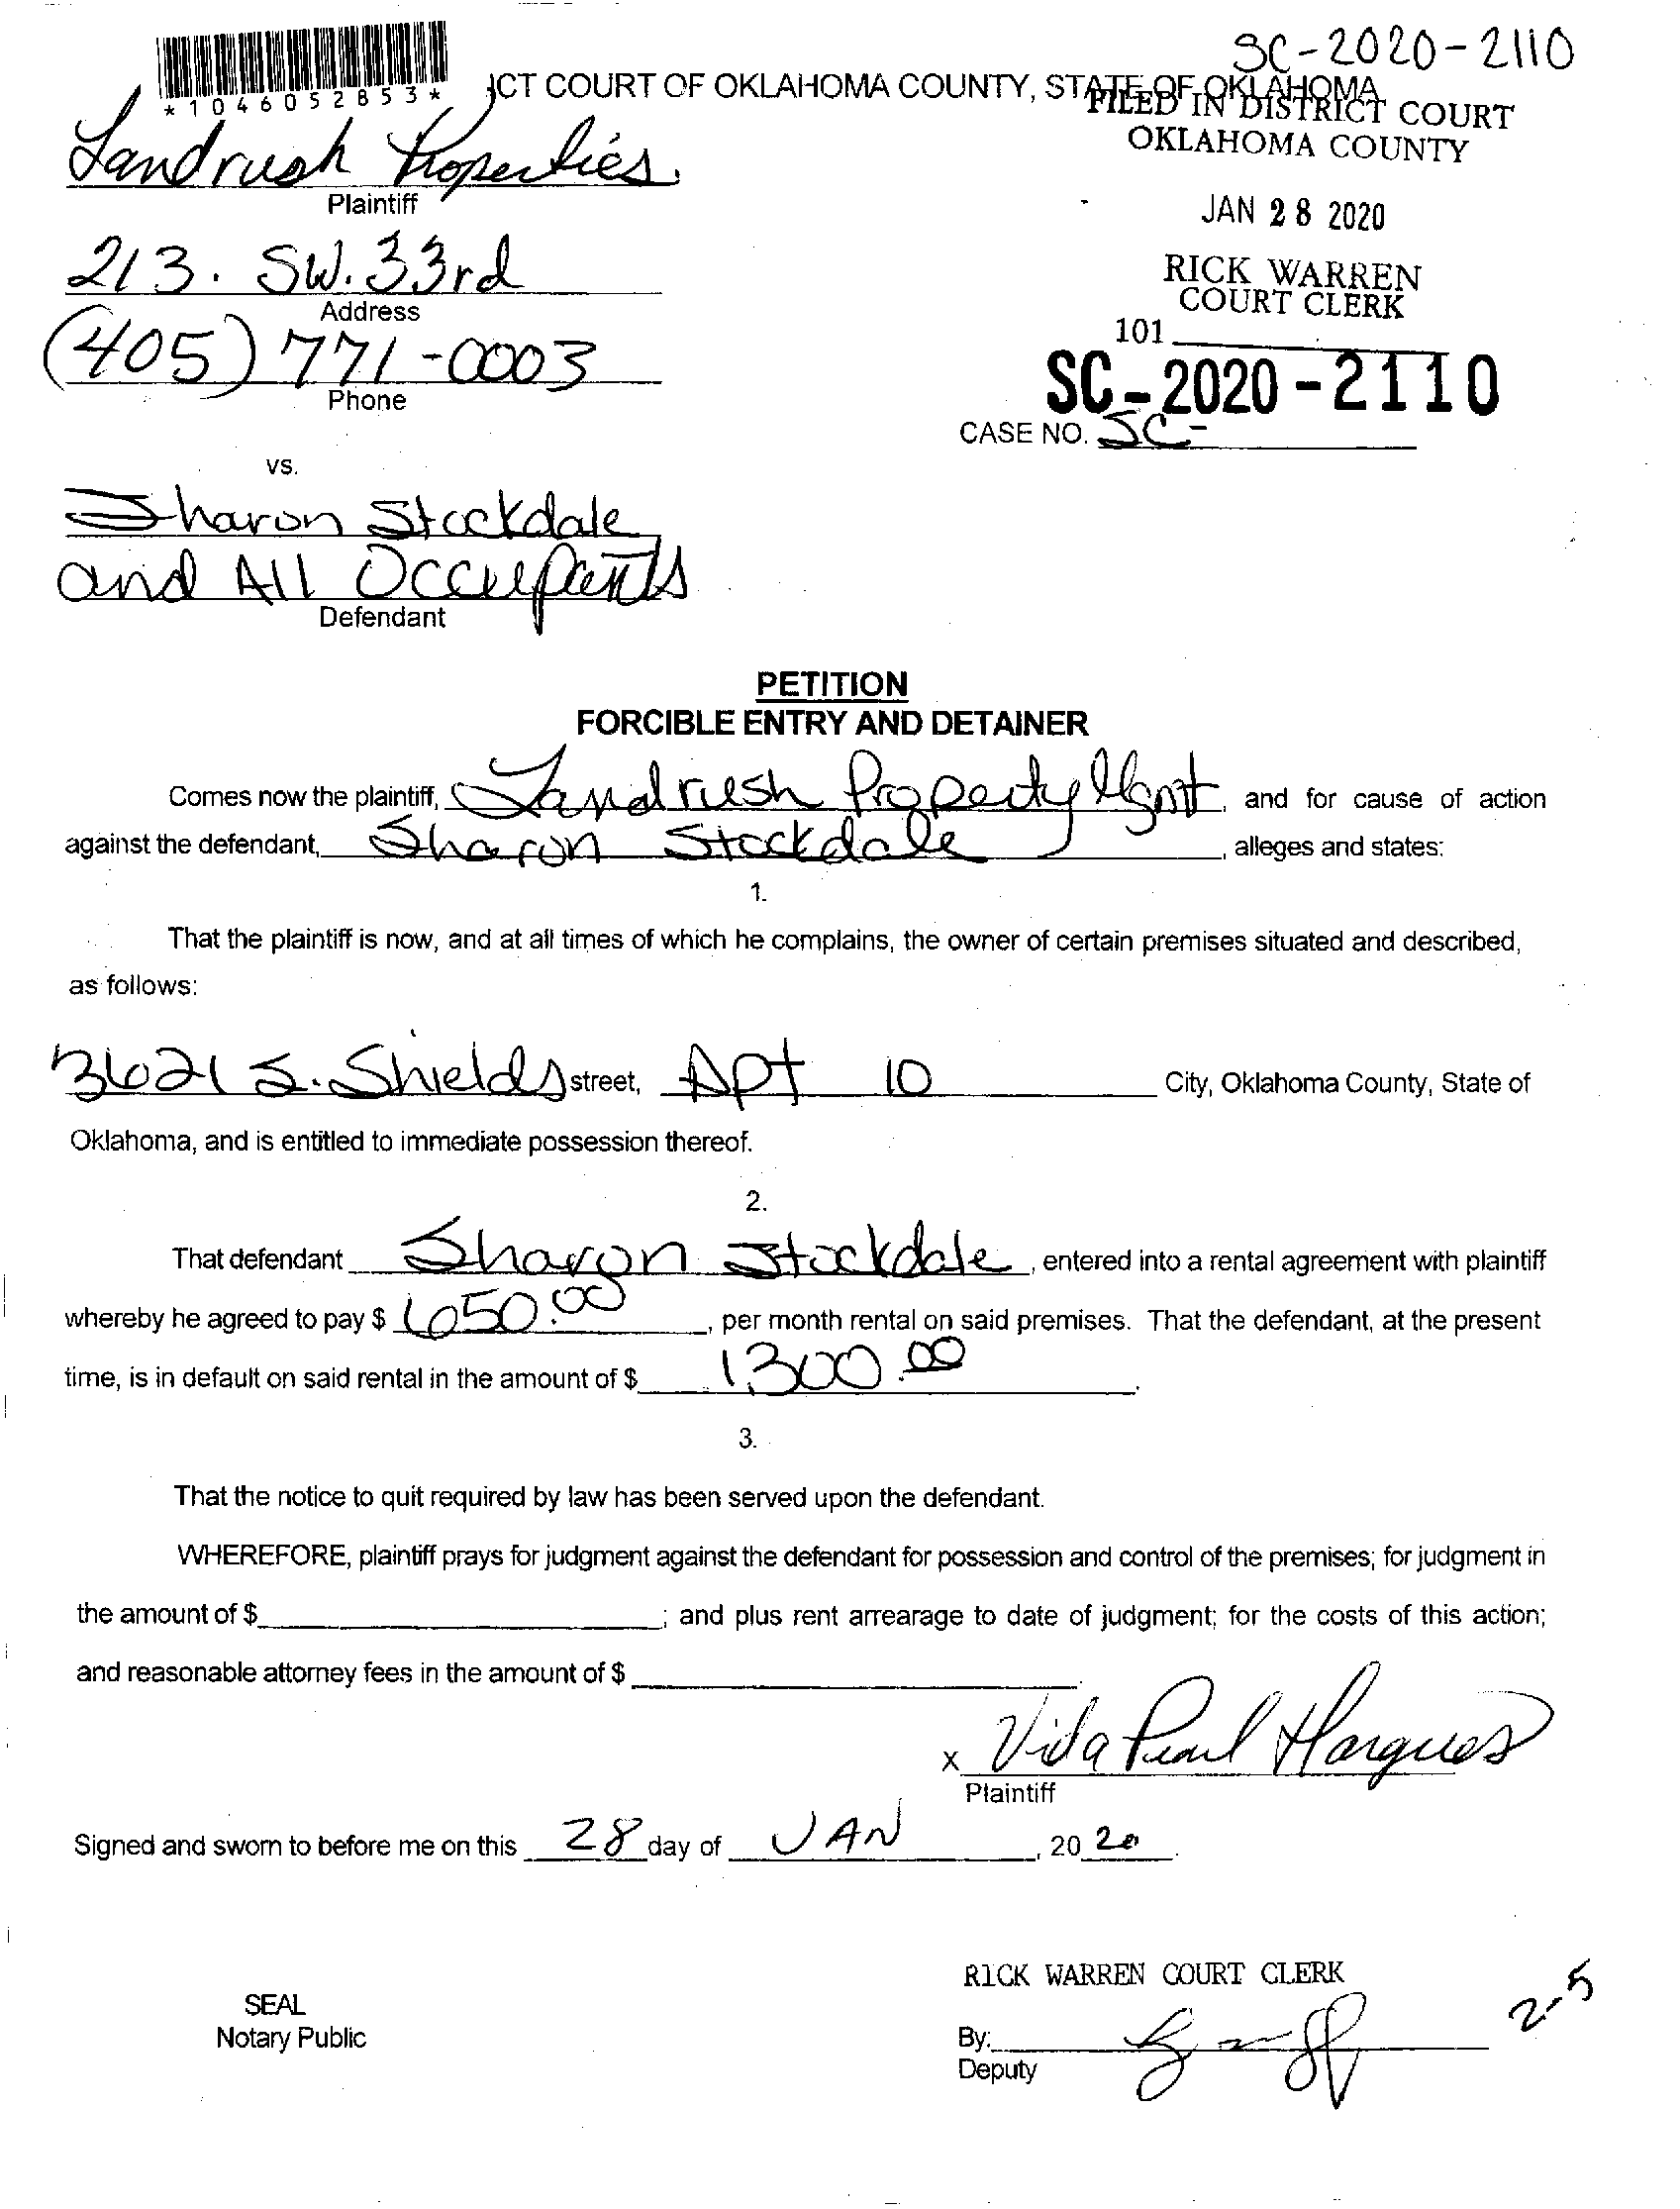 SC-2020-2110
*1046052853*
ICT COURT OF OKLAHOMA COUNTY, STATE OF OKLAHOMA
FILED IN DISTRICT COURT
OKLAHOMA COUNTY
Landrush Properties.
Plaintiff
JAN 28 2020
213. SW. 33rd
Address
RICK WARREN
COURT CLERK
101
(405) 771-0003
Phone
SC-2020-2110
CASE NO. SC-
vs.
Sharon Stockdale
and All Occupants
Defendant
PETITION
FORCIBLE ENTRY AND DETAINER
Comes now the plaintiff, Landrush Property Mgmt, and for cause of action
against the defendant, Sharon Stockdale, alleges and states:
1.
That the plaintiff is now, and at all times of which he complains, the owner of certain premises situated and described,
as follows:
3621 S. Shields street, Apt 10 City, Oklahoma County, State of
Oklahoma, and is entitled to immediate possession thereof.
2.
That defendant Sharon Stockdale, entered into a rental agreement with plaintiff
whereby he agreed to pay $ 650.00, per month rental on said premises. That the defendant, at the present
time, is in default on said rental in the amount of $ 1,300.00.
3.
That the notice to quit required by law has been served upon the defendant.
WHEREFORE, plaintiff prays for judgment against the defendant for possession and control of the premises; for judgment in
the amount of $ ; and plus rent arrearage to date of judgment; for the costs of this action;
and reasonable attorney fees in the amount of $ .
x Vida Pearl Hargues
Plaintiff
Signed and sworn to before me on this 28 day of JAN, 20 20.
RICK WARREN COURT CLERK
2-5
SEAL
Notary Public
By:
Deputy